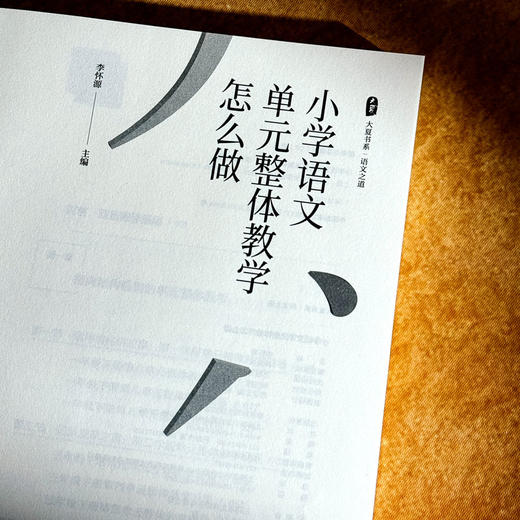 大夏
大夏书系 | 语文之道
小学语文
单元整体教学
怎么做
李怀源——主编